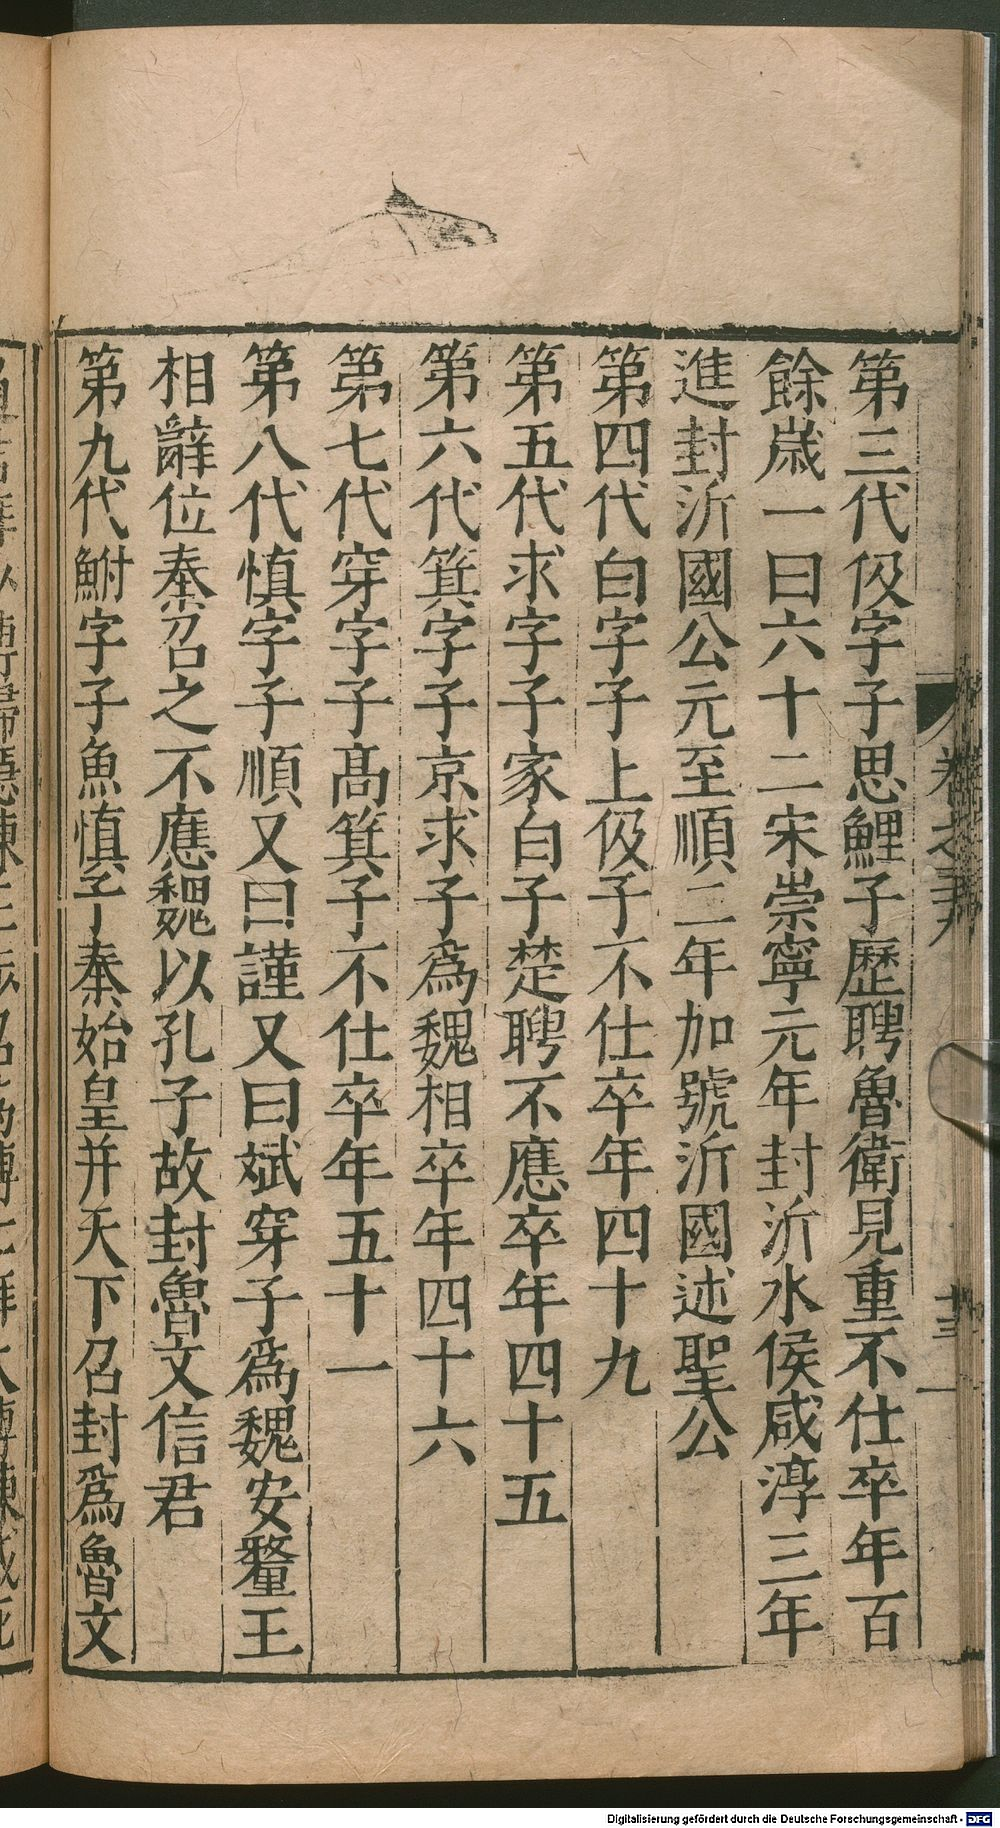 第三代伋字子思鯉子歷聘魯衛見重不仕卒年百
餘歲一曰六十二宋崇寧元年封沂水侯咸淳三年
進封沂國公元至順二年加號沂國述聖公
第四代白字子上伋子不仕卒年四十九
第五代求字子家白子楚聘不應卒年四十五
第六代箕字子京求子爲魏相卒年四十六
第七代穿字子高箕子不仕卒年五十一
第八代慎字子順又曰謹又曰斌穿子爲魏安釐王
相辭位秦召之不應魏以孔子故封魯文信君
第九代鮒字子魚慎子秦始皇并天下召封爲魯文
Digitalisierung gefördert durch die Deutsche Forschungsgemeinschaft - DFG